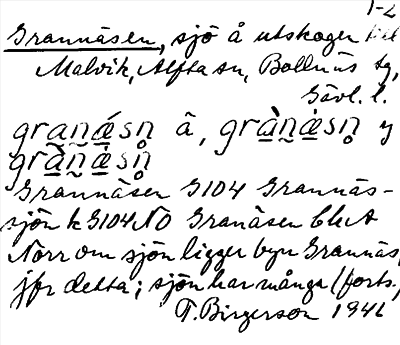 1-2
Grannäsen, sjö å utskogen till
Malvik, Alfta sn, Bollnäs tg,
Gävl. l.
grañǽsn̥ ä, gràñæ̀sn̥ y
gràñæ̀sn̥
Grannäsen G104 Grannäs-
sjön k G104NO Granåsen bl.A
Norr om sjön ligger byn Grannäs,
jfr detta; sjön har många (forts.,
T. Birgerson 1941